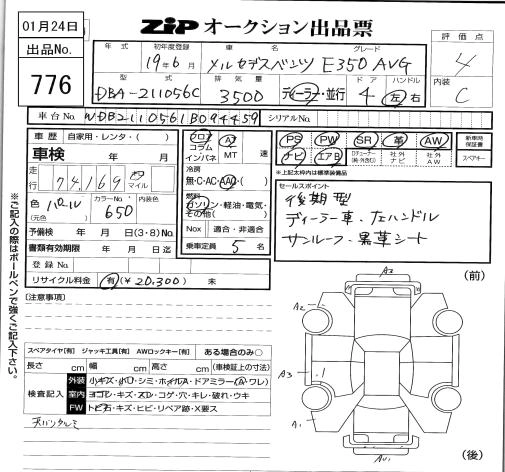 01月24日
ZiP オークション出品票
出品No.
776
年式 初年度登録 車名 グレード
19年6月 メルセデスベンツ E350 AVG
型式 排気量 ドア ハンドル
DBA-211056C 3500 ディーラー・並行 4 左・右
評価点
4
内装
C
車台No. WDB2110561B094459 シリアルNo.
車歴 自家用・レンタ・( )
車検 年 月
走行 74,169 km マイル
色 パール カラーNo. 650 内装色
(元色)
予備検 年 月 日(3・8)No.
書類有効期限 年 月 日迄
登録No.
リサイクル料金 有(¥20,300)未
フロア AT
コラム MT 速
インパネ
冷房
無・C・AC・AAC・( )
燃料
ガソリン・軽油・電気・
その他( )
Nox 適合・非適合
乗車定員 5 名
PS PW SR 革 AW
ナビ エアB 社外ナビ 社外AW
新車時保証書
スペアキー
※上記太枠内は標準装備品
セールスポイント
後期型
ディーラー車・左ハンドル
サンルーフ・黒革シート
※ご記入の際はボールペンで強くご記入下さい。
注意事項
スペアタイヤ[有] ジャッキ工具[有] AWロックキー[有] ある場合のみ○
長さ cm 幅 cm 高さ cm (車検証上の寸法)
検査記入
外装 小キズ・小凹・シミ・ホイルA・ドアミラー(A・ワレ)
室内 ヨゴレ・キズ・スレ・コゲ・穴・キレ・破れ・ウキ
FW トビ石・キズ・ヒビ・リペア跡・X要ス
天バリタルミ
(前)
A2
A2
A3
A1
AU1
(後)